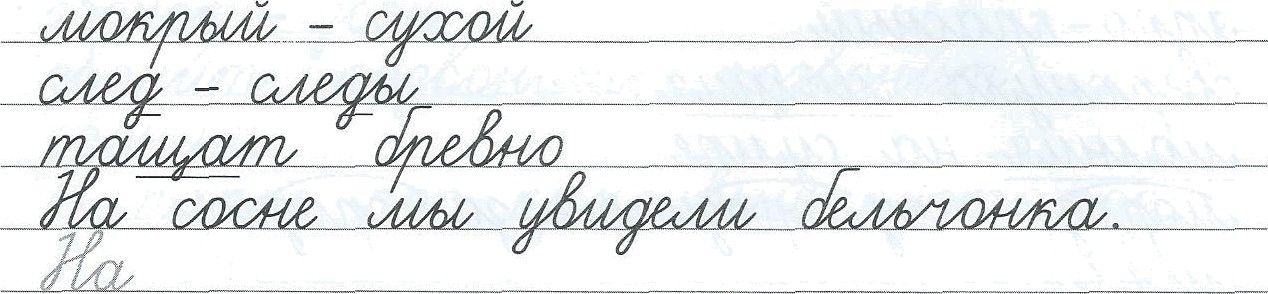 мокрый - сухой
след - следы
тащат бревно
На сосне мы увидели бельчонка.
На